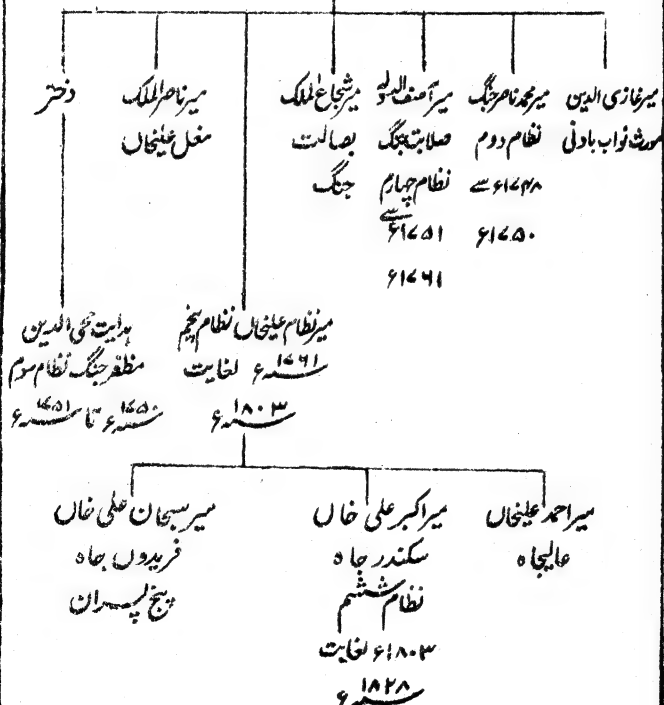 میر غازی الدین
مورث نواب باونی
میر محمد ناصر جنگ
نظام دوم
۱۷۴۸ء سے
۱۷۵۰ء
میر آصف الدولہ
صلابت جنگ
نظام چہارم
۱۷۵۱ء سے
۱۷۶۱ء
میر شجاع الملک
بصالت
جنگ
میر ناصر الملک
مغل علیخاں
دختر
میر نظام علیخاں نظام پنجم
۱۷۶۱ء لغایت
۱۸۰۳ء
ہدایت محی الدین
مظفر جنگ نظام سوم
۱۷۵۰ء تا ۱۷۵۱ء
میر احمد علیخاں
عالیجاہ
میر اکبر علی خاں
سکندر جاہ
نظام ششم
۱۸۰۳ء لغایت
۱۸۲۸ء
میر سبحان علی خاں
فریدوں جاہ
پنج پسران